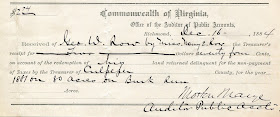 Commonwealth of Virginia,
Office of the Auditor of Public Accounts,
Richmond, Dec 16 1884
Received of Geo. W. Row by the Treasurer's
receipt for dollars seventy four Cents,
on account of the redemption of his land returned delinquent for the non-payment
of Taxes by the Treasurer of Culpeper County, for the year
1881 on 80 acres on Burk Run
Morton Marye
Auditor Public Acc